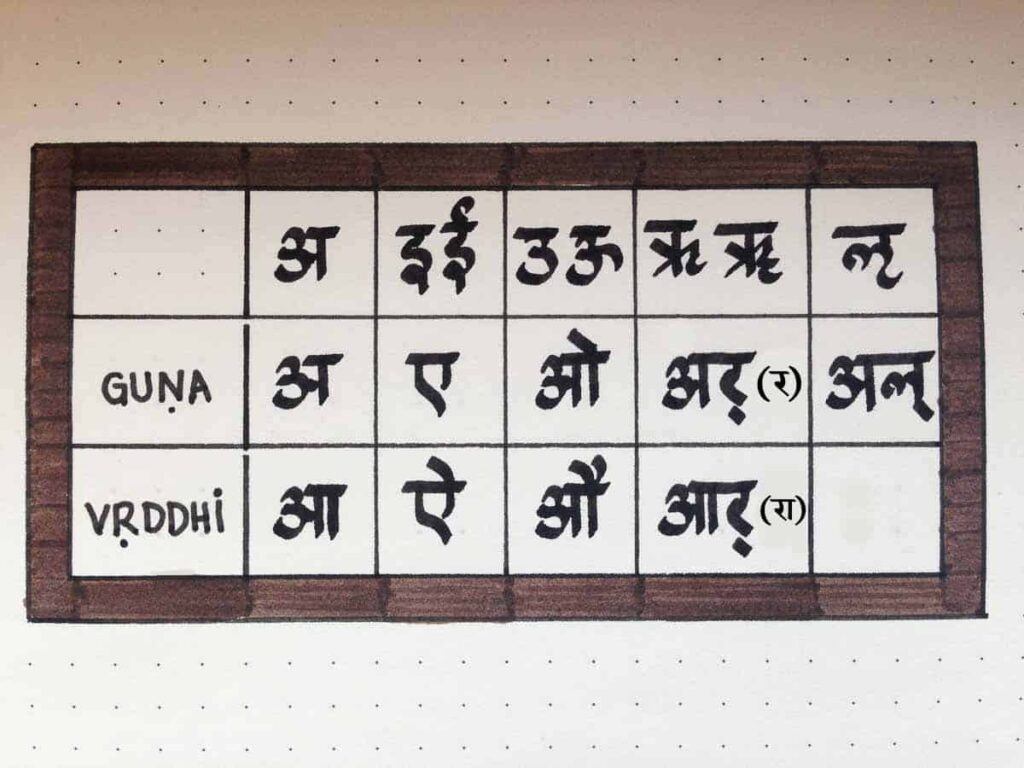 अ इ ई उ ऊ ऋ ॠ ऌ
GUṆA अ ए ओ अर् (र) अल्
VṚDDHI आ ऐ औ आर् (रा)